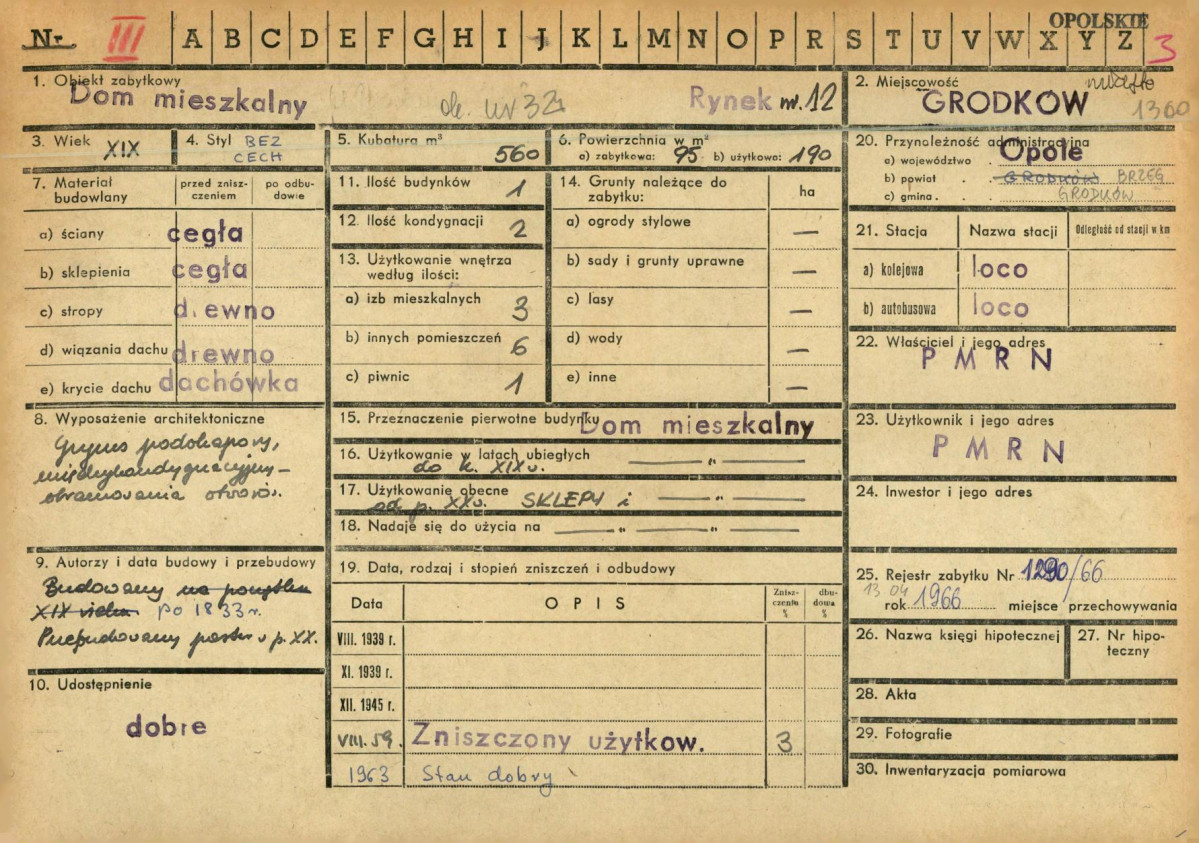 OPOLSKIE
Nr. III A B C D E F G H I J K L M N O P R S T U V W X Y Z 3
1. Obiekt zabytkowy
Dom mieszkalny ob. nr 32 Rynek nr. 12
2. Miejscowość
GRODKÓW 1300
3. Wiek XIX
4. Styl BEZ
CECH
5. Kubatura m³
560
6. Powierzchnia w m²
a) zabytkowa: 95 b) użytkowa: 190
20. Przynależność administracyjna
a) województwo Opole
b) powiat GRODKÓW BRZEG
c) gmina GRODKÓW
7. Materiał budowlany
przed zniszczeniem
po odbudowie
a) ściany cegła
b) sklepienia cegła
c) stropy drewno
d) wiązania dachu drewno
e) krycie dachu dachówka
11. Ilość budynków 1
12. Ilość kondygnacji 2
13. Użytkowanie wnętrza
według ilości:
a) izb mieszkalnych 3
b) innych pomieszczeń 6
c) piwnic 1
14. Grunty należące do
zabytku: ha
a) ogrody stylowe —
b) sady i grunty uprawne —
c) lasy —
d) wody —
e) inne —
21. Stacja Nazwa stacji Odległość od stacji w km
a) kolejowa loco
b) autobusowa loco
22. Właściciel i jego adres
P M R N
8. Wyposażenie architektoniczne
Gzyms podokapowy,
międzykondygnacyjny –
obramowania otworów.
15. Przeznaczenie pierwotne budynku Dom mieszkalny
16. Użytkowanie w latach ubiegłych — „ —
do k. XIX w.
17. Użytkowanie obecne SKLEPY i — „ —
od p. XX w.
18. Nadaje się do użycia na — „ — „ —
23. Użytkownik i jego adres
P M R N
24. Inwestor i jego adres
9. Autorzy i data budowy i przebudowy
Budowany na początku
XIX wieku po 1833 r.
Przebudowany parter w p. XX.
10. Udostępnienie
dobre
19. Data, rodzaj i stopień zniszczeń i odbudowy
Data OPIS Zniszczenia % dbudowa %
VIII. 1939 r.
XI. 1939 r.
XII. 1945 r.
VIII. 59. Zniszczony użytkow. 3
1963 Stan dobry
25. Rejestr zabytku Nr 1290/66
13 04
rok 1966 miejsce przechowywania
26. Nazwa księgi hipotecznej
27. Nr hipoteczny
28. Akta
29. Fotografie
30. Inwentaryzacja pomiarowa